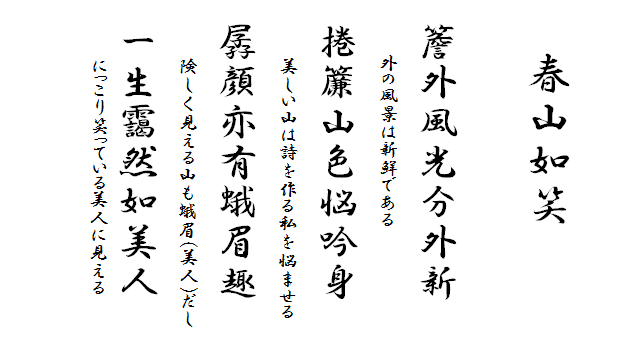 春山如笑
簷外風光分外新
外の風景は新鮮である
捲簾山色悩吟身
美しい山は詩を作る私を悩ませる
孱顔亦有蛾眉趣
険しく見える山も蛾眉(美人)だし
一生靄然如美人
にっこり笑っている美人に見える